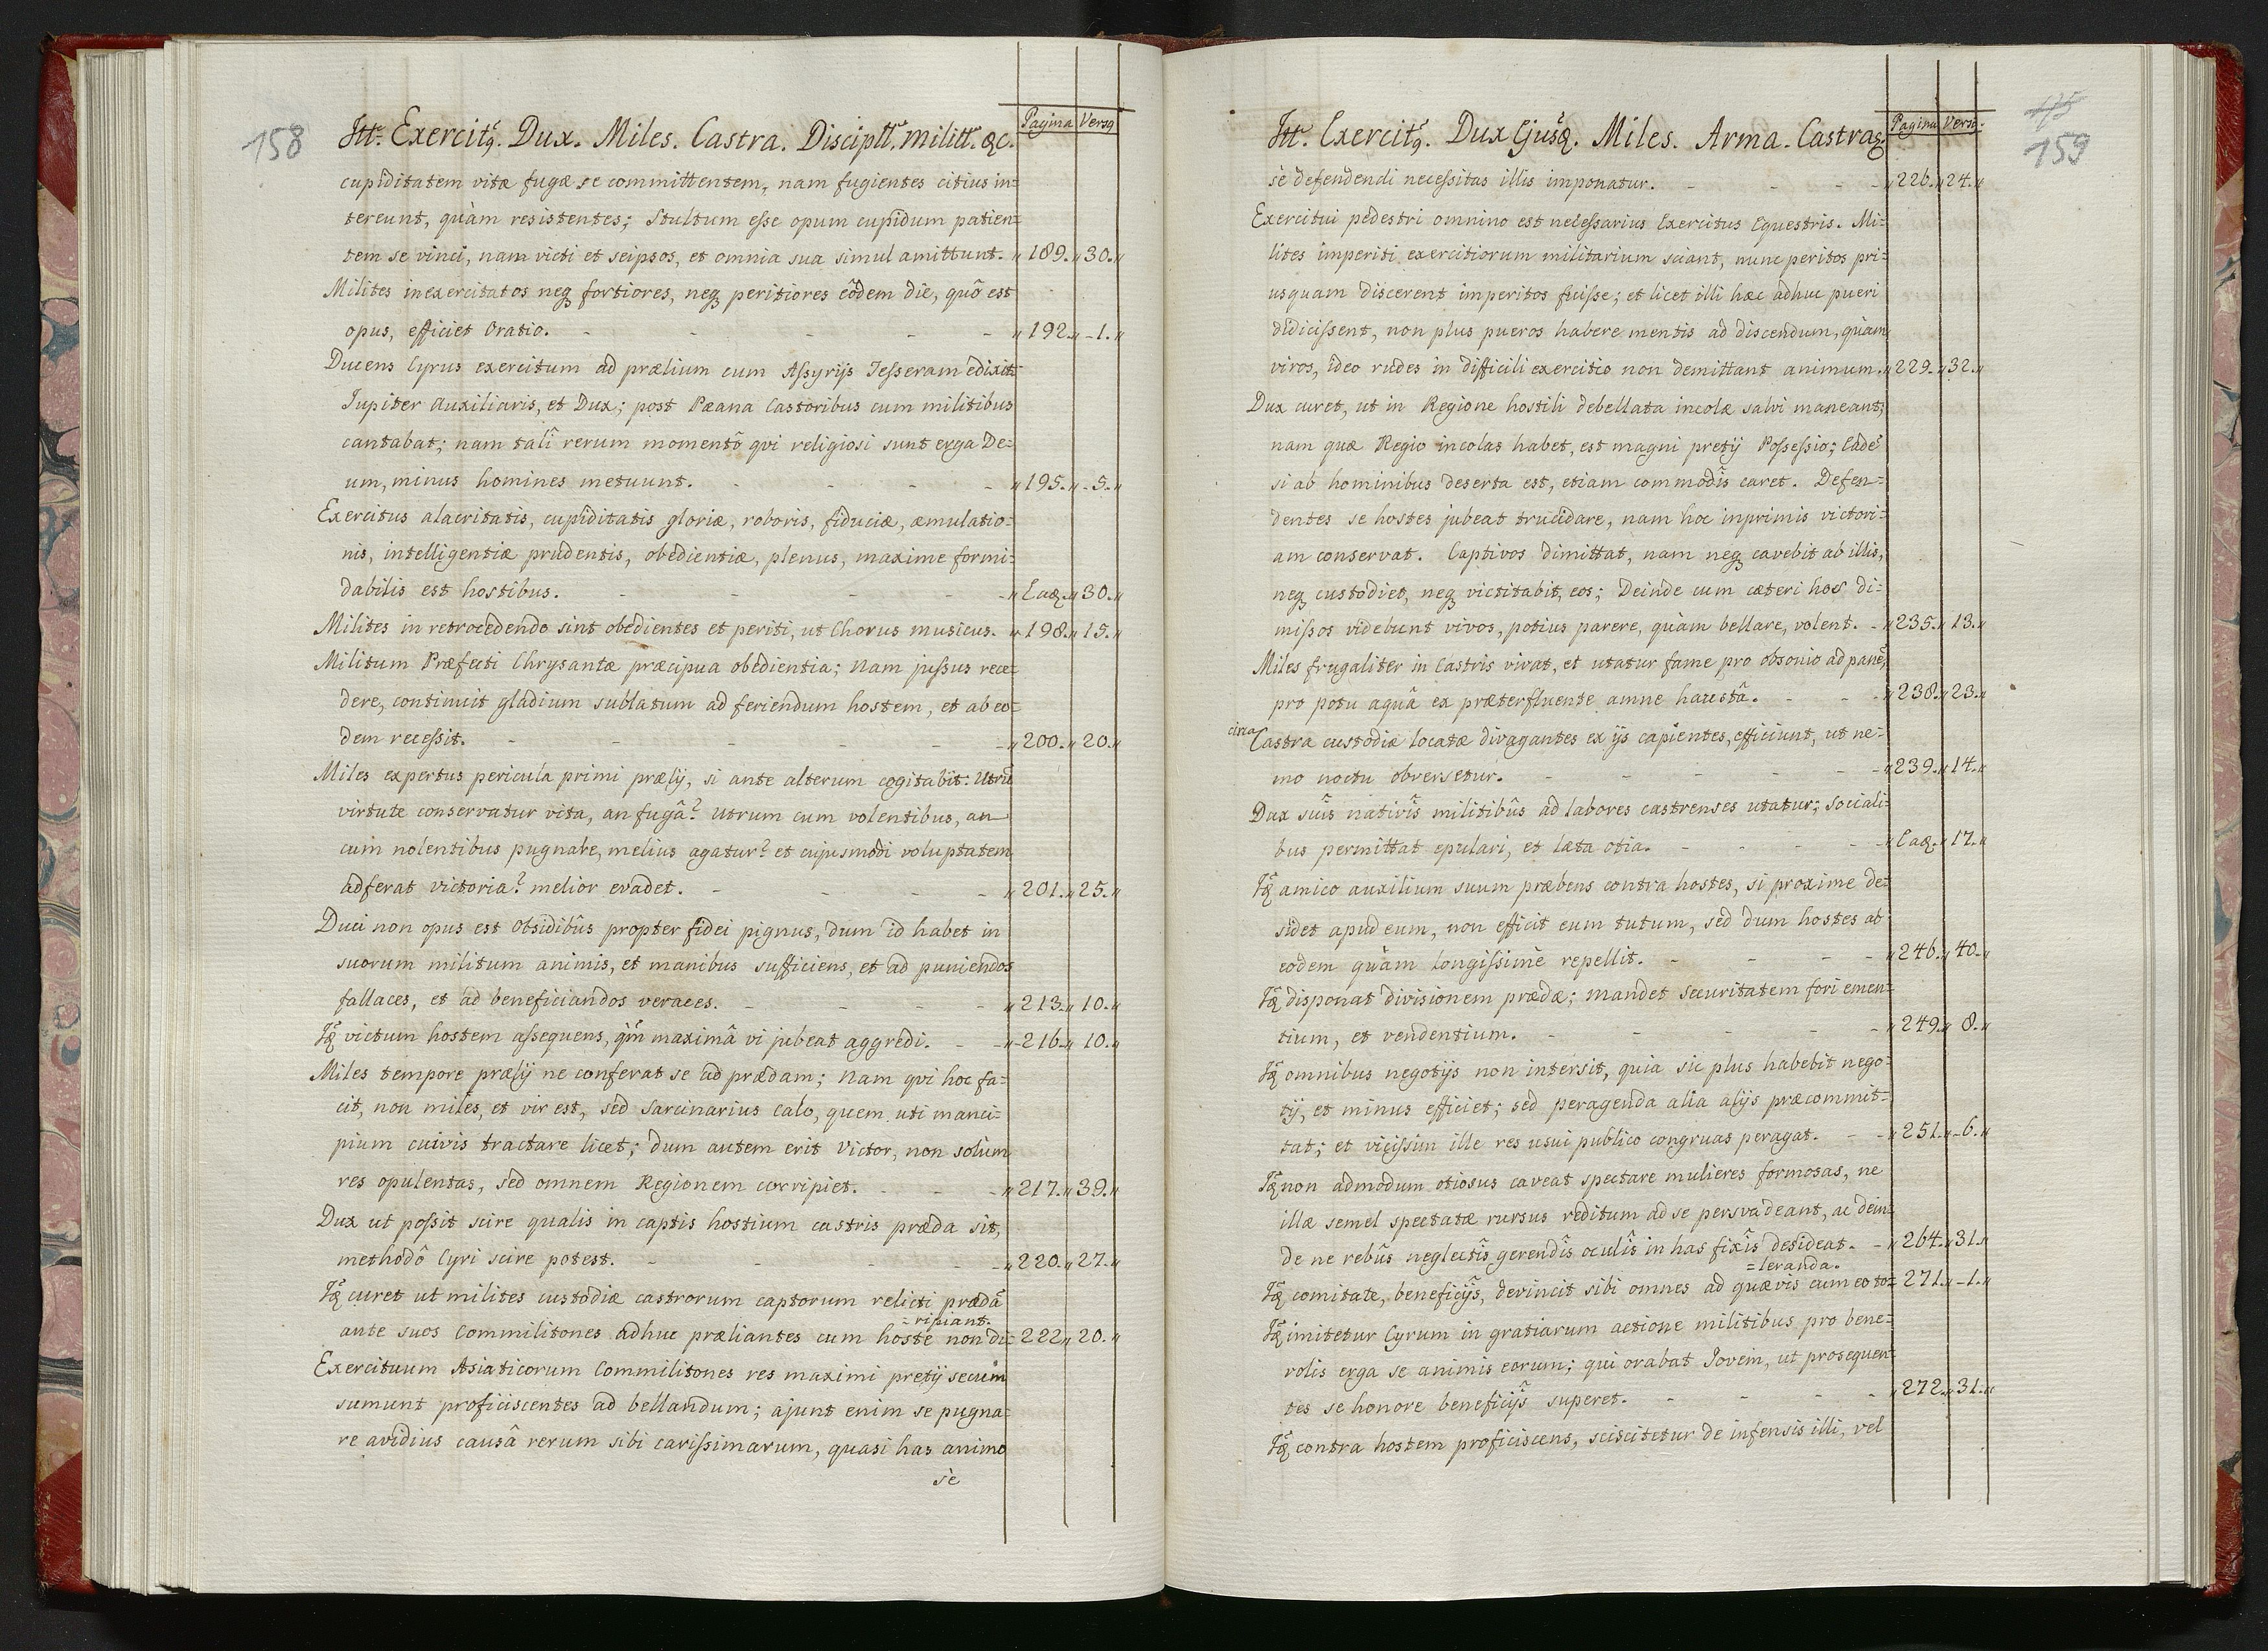 158
Itt. Exercitꝰ. Dux. Miles. Castra. Disciptt. militt. &c.
Pagina Versꝰ
cupiditatem vitæ fugæ se committentem, nam fugientes citius in=
tereunt, quàm resistentes; Stultum esse opum cupidum patien=
tem se vinci, nam victi et seipsos, et omnia sua simul amittunt. „189.„30.„
Milites inexercitatos neq fortiores, neq peritiores eôdem die, quô est
opus, efficiet Oratio. - - - - - „192.„-1.„
Ducens Cyrus exercitum ad prælium cum Assyrijs Tesseram edixit:
Jupiter Auxiliaris, et Dux; post Pæana Castoribus cum militibus
cantabat; nam talî rerum momentô qvi religiosi sunt erga De=
um, minus homines metuunt. - - - - „195.„-5.„
Exercitus alacritatis, cupiditatis gloriæ, roboris, fiduciæ, æmulatio=
nis, intelligentiæ prudentis, obedientiæ, plenus, maxime formi=
dabilis est hostibus. - - - - - „Eaq.„30.„
Milites in retrocedendo sint obedientes et periti, ut Chorus musicus. „198.„15.„
Militum Præfecti Chrysantæ præcipua obedientia; Nam jussus rece=
dere, continuit gladium sublatum ad feriendum hostem, et ab eo=
dem recessit. - - - - - „200.„20.„
Miles expertus pericula primi prælij, si ante alterum cogitabit: Utrũ
virtute conservatur vita, an fugâ? Utrum cum volentibus, an
cum nolentibus pugnare, melius agatur? et cujusmodi voluptatem
adferat victoria? melior evadet. - - - - „201.„25.„
Duci non opus est Obsidibûs propter fidei pignus, dum id habet in
suorum militum animis, et manibus sufficiens, et ad puniendos
fallaces, et ad beneficiandos veraces. - - - „213.„10.„
Iq̃ victum hostem assequens, qm̃ maximâ vi jubeat aggredi. - - „216.„10.„
Miles tempore prælij ne conferat se ad prædam; Nam qvi hoc fa=
cit, non miles, et vir est, sed Sarcinarius Calo, quem uti manci=
pium cuivis tractare licet; dum autem erit Victor, non solum
res opulentas, sed omnem Regionem corripiet. - - - „217.„39.„
Dux ut possit scire qualis in captis hostium castris præda sit,
methodô Cyri scire potest. - - - - „220.„27.„
Iq̃ curet ut milites custodiæ castrorum captorum relicti prædã
=ripiant.
ante suos Commilitones adhuc præliantes cum hoste non di= 222„20.„
Exercituum Asiaticorum Commilitones res maximi pretij secum
sumunt proficiscentes ad bellandum; ajunt enim se pugna=
re avidius causâ rerum sibi carissimarum, quasi has animo
se
175
159
Itt. Exercitꝰ. Dux Ejusq. Miles. Arma. Castraq.
Pagina Versꝰ
se defendendi necessitas illis imponatur. - - - „226.„24.„
Exercitui pedestri omnino est necessarius Exercitus Equestris. Mi=
lites imperiti exercitiorum militarium sciant, nunc peritos pri=
usquam discerent imperitos fuisse; et licet illi hæc adhuc pueri
didicissent, non plus pueros habere mentis ad discendum, quàm
viros, ideo rudes in difficili exercitio non demittant animum. „229.„32.„
Dux curet, ut in Regione hostili debellata incolæ salvi maneant;
nam quæ Regio incolas habet, est magni pretij Possessio; Eadẽ
si ab hominibus deserta est, etiam commodîs caret. Defen=
dentes se hostes jubeat trucidare, nam hoc inprimis victori=
am conservat. Captivos dimittat, nam neq cavebit ab illis,
neq custodiet, neq victitabit, eos; Deinde cum cæteri hos di=
missos videbunt vivos, potius parere, quàm bellare, volent. - „235.„13.„
Miles frugaliter in Castris vivat, et utatur fame pro obsonio ad panẽ,
pro potu aquâ ex præterfluente amne haustâ. - - - „238.„23.„
circa Castra custodiæ locatæ divagantes ex ijs capientes, efficiunt, ut ne=
mo noctu obversetur. - - - - - „239.„14.„
Dux suîs nativîs militibûs ad labores castrenses utatur; Sociali=
bus permittat epulari, et læta otia. - - - - „Eaq.„17.„
Iq̃ amico auxilium suum præbens contra hostes, si proxime de=
sidet apud eum, non efficit eum tutum, sed dum hostes ab
eodem quàm longissimè repellit. - - - - „246.„40.„
Iq̃ disponat divisionem prædæ; mandet securitatem fori emen=
tium, et vendentium. - - - - - „249.„8.„
Iq̃ omnibus negotijs non intersit, quia sic plus habebit nego=
tij, et minus efficiet; sed peragenda alia alijs præcommit=
tat; et vicissim ille res usui publico congruas peragat. - - „251.„-6.„
Iq̃ non admodum otiosus caveat spectare mulieres formosas, ne
illæ semel spectatæ rursus reditum ad se persvadeant, ac dein=
de ne rebûs neglectîs gerendîs oculîs in has fixîs desideat. - „264.„31.„
=leranda.
Iq̃ comitate, beneficijs, devincit sibi omnes ad quævis cum eo to= 271.„-1.„
Iq̃ imitetur Cyrum in gratiarum actione militibus pro bene=
volis erga se animis eorum; qui orabat Jovem, ut prosequen=
tes se honore beneficijs superet. - - - - „272.„31.„
Iq̃ contra hostem proficiscens, sciscitetur de infensis illi, vel